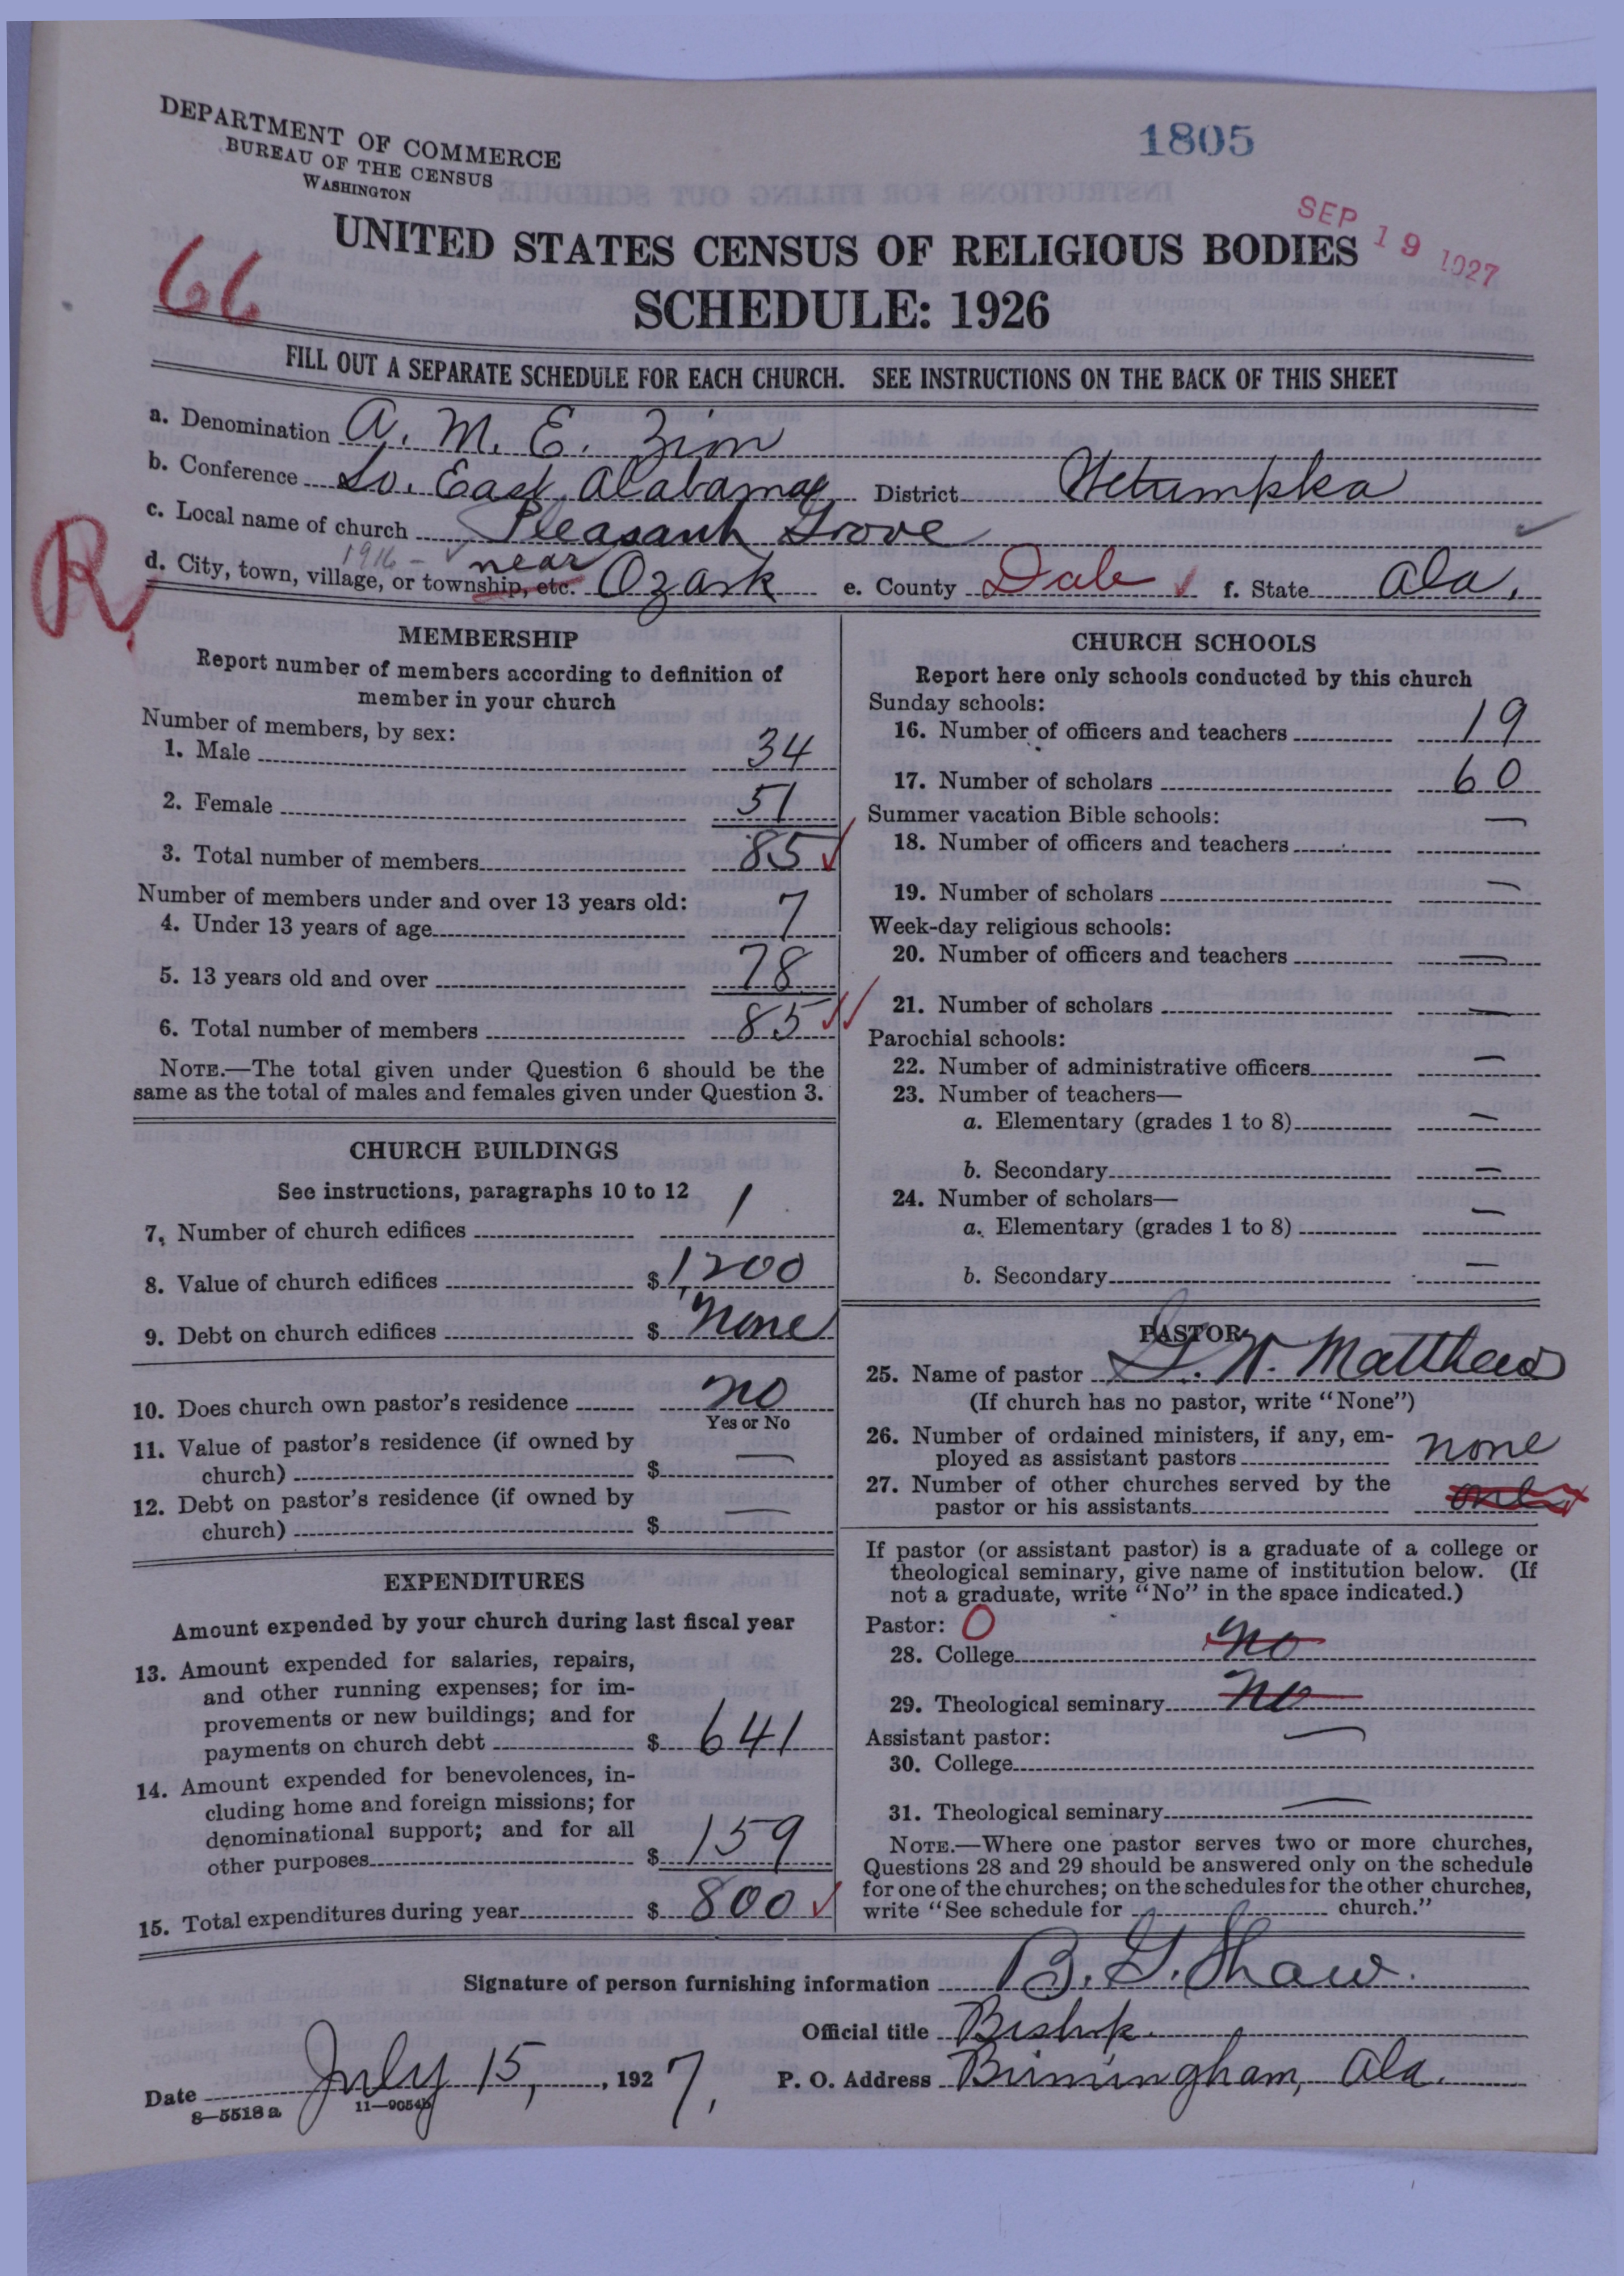 DEPARTMENT OF COMMERCE
BUREAU OF THE CENSUS
WASHINGTON
1805
SEP 19 1927
UNITED STATES CENSUS OF RELIGIOUS BODIES
SCHEDULE: 1926
66
FILL OUT A SEPARATE SCHEDULE FOR EACH CHURCH. SEE INSTRUCTIONS ON THE BACK OF THIS SHEET
a. Denomination A. M. E. Zion
b. Conference So. East Alabama District Wetumpka
c. Local name of church Pleasant Grove
1916 - near
R.
d. City, town, village, or township, etc. Ozark e. County Dale f. State Ala.
MEMBERSHIP
Report number of members according to definition of
member in your church
Number of members, by sex:
1. Male 34
2. Female 51
3. Total number of members 85
Number of members under and over 13 years old:
4. Under 13 years of age 7
5. 13 years old and over 78
6. Total number of members 85
NOTE.—The total given under Question 6 should be the
same as the total of males and females given under Question 3.
CHURCH BUILDINGS
See instructions, paragraphs 10 to 12
7. Number of church edifices 1
8. Value of church edifices $ 1200
9. Debt on church edifices $ None
10. Does church own pastor's residence no
Yes or No
11. Value of pastor's residence (if owned by
church) $ —
12. Debt on pastor's residence (if owned by
church) $ —
EXPENDITURES
Amount expended by your church during last fiscal year
13. Amount expended for salaries, repairs,
and other running expenses; for im-
provements or new buildings; and for
payments on church debt $ 641
14. Amount expended for benevolences, in-
cluding home and foreign missions; for
denominational support; and for all
other purposes $ 159
15. Total expenditures during year $ 800
CHURCH SCHOOLS
Report here only schools conducted by this church
Sunday schools:
16. Number of officers and teachers 19
17. Number of scholars 60
Summer vacation Bible schools:
18. Number of officers and teachers —
19. Number of scholars —
Week-day religious schools:
20. Number of officers and teachers —
21. Number of scholars —
Parochial schools:
22. Number of administrative officers —
23. Number of teachers—
a. Elementary (grades 1 to 8) —
b. Secondary —
24. Number of scholars—
a. Elementary (grades 1 to 8) —
b. Secondary —
PASTOR
25. Name of pastor W. Matthews
(If church has no pastor, write "None")
26. Number of ordained ministers, if any, em-
ployed as assistant pastors none
27. Number of other churches served by the
pastor or his assistants one
If pastor (or assistant pastor) is a graduate of a college or
theological seminary, give name of institution below. (If
not a graduate, write "No" in the space indicated.)
Pastor: O
28. College No
29. Theological seminary No
Assistant pastor:
30. College —
31. Theological seminary —
NOTE.—Where one pastor serves two or more churches,
Questions 28 and 29 should be answered only on the schedule
for one of the churches; on the schedules for the other churches,
write "See schedule for church."
Signature of person furnishing information B. G. Shaw.
Official title Bishop.
Date July 15, 1927, P. O. Address Birmingham, Ala.
8—5518 a 11—9054b